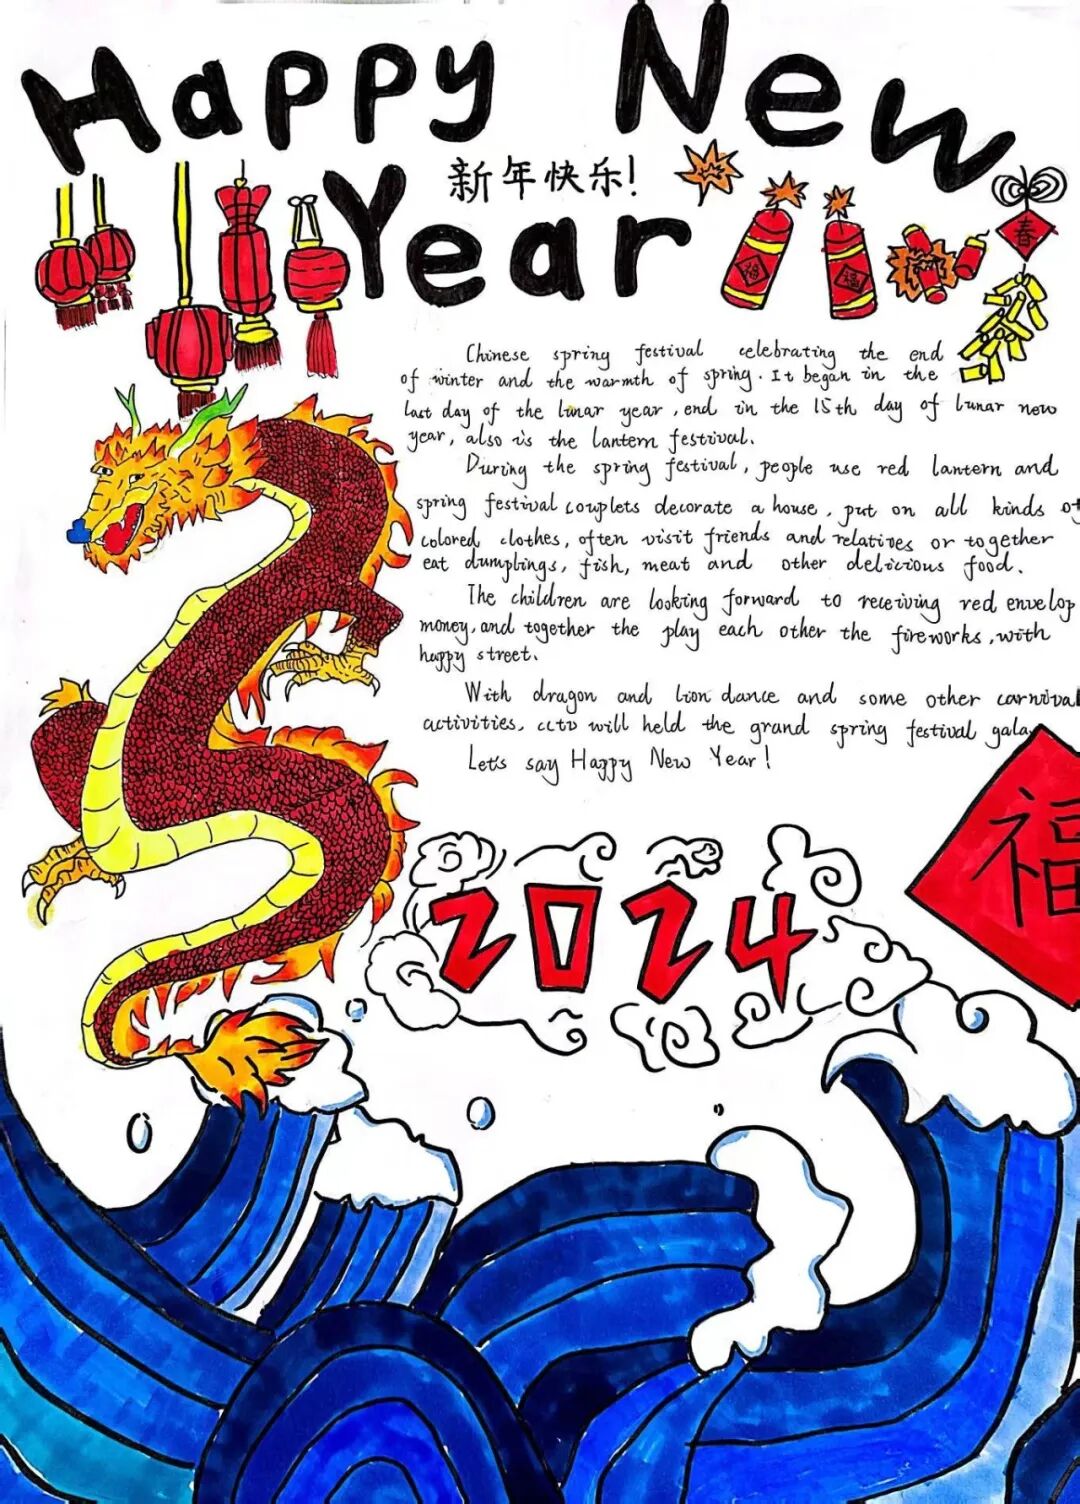 Happy New
新年快乐!
Year
春
福
福
Chinese spring festival celebrating the end
of winter and the warmth of spring. It began in the
last day of the lunar year, end in the 15th day of lunar new
year, also is the lantern festival.
During the spring festival, people use red lantern and
spring festival couplets decorate a house, put on all kinds of
colored clothes, often visit friends and relatives or together
eat dumplings, fish, meat and other delicious food.
The children are looking forward to receiving red envelop
money, and together the play each other the fireworks, with
happy street.
With dragon and lion dance and some other carnival
activities, cctv will held the grand spring festival gala
Let's say Happy New Year!
福
2024